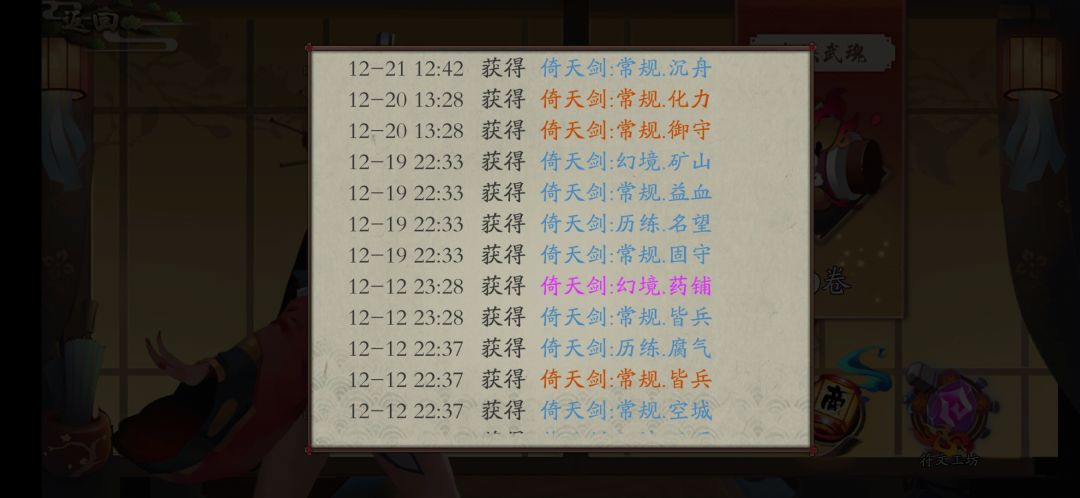 返回
武魂
12-21 12:42 获得 倚天剑:常规.沉舟
12-20 13:28 获得 倚天剑:常规.化力
12-20 13:28 获得 倚天剑:常规.御守
12-19 22:33 获得 倚天剑:幻境.矿山
12-19 22:33 获得 倚天剑:常规.益血
12-19 22:33 获得 倚天剑:历练.名望
12-19 22:33 获得 倚天剑:常规.固守
12-12 23:28 获得 倚天剑:幻境.药铺
卷
12-12 23:28 获得 倚天剑:常规.皆兵
12-12 22:37 获得 倚天剑:历练.腐气
12-12 22:37 获得 倚天剑:常规.皆兵
12-12 22:37 获得 倚天剑:常规.空城
符文工坊